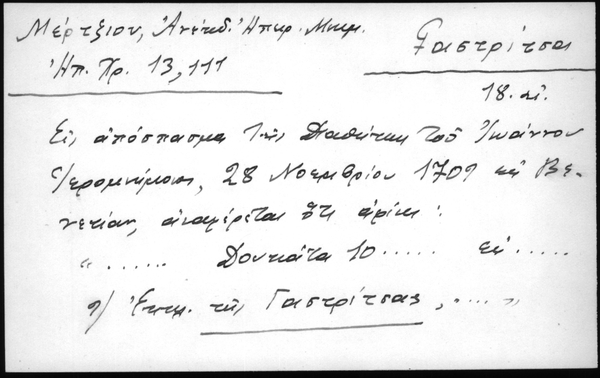 Μέρτζιου, Ἀνέκδ. Ἠπειρ. Μνημ.
Γαστρίτσα
Ἠπ. Χρ. 13, 111
18. αἰ.
Εἰς ἀπόσπασμα τῆς Διαθήκης τοῦ Ἰωάννου
Ἱερομνήμονος, 28 Νοεμβρίου 1709 ἐν Βε-
νετίᾳ, ἀναφέρεται ὅτι ἀφίνει:
"...... Δουκάτα 10 ..... εἰς .....
Ἐκκλ. τῆς Γαστρίτσας, ..... "